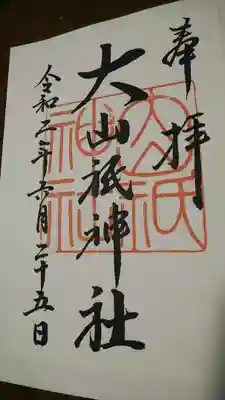 奉拝
大山祇神社
令和二年六月二十五日
大山祇神社